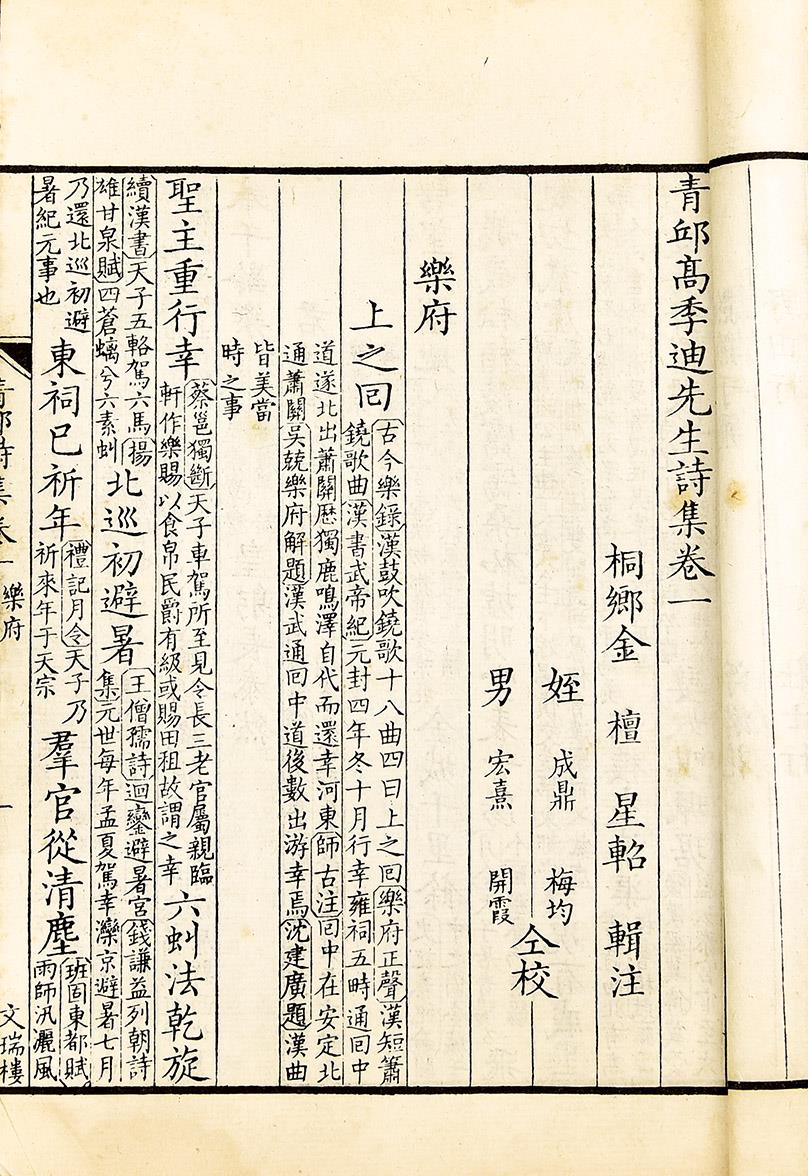 青邱高季迪先生詩集卷一
桐鄉金　檀　星軺　輯注
姪　成鼎　梅均
男　宏熹　開霞
仝校
樂府
上之回
古今樂錄漢鼓吹鐃歌十八曲四曰上之回樂府正聲漢短簫
鐃歌曲漢書武帝紀元封四年冬十月行幸雍祠五畤通回中
道遂北出蕭關歷獨鹿鳴澤自代而還幸河東師古注回中在安定北
通蕭關吳兢樂府解題漢武通回中道後數出游幸焉沈建廣題漢曲
皆美當
時之事
聖主重行幸
蔡邕獨斷天子車駕所至見令長三老官屬親臨
軒作樂賜以食帛民爵有級或賜田租故謂之幸
六虯法乾旋
續漢書天子五輅駕六馬揚
雄甘泉賦四蒼螭兮六素虯
北巡初避暑
王僧孺詩迴鑾避暑宮錢謙益列朝詩
集元世每年孟夏駕幸灤京避暑七月
乃還北巡初避
暑紀元事也
東祠已祈年
禮記月令天子乃
祈來年于天宗
羣官從清塵
班固東都賦
雨師汎灑風
青邱詩集卷一　樂府
一
文瑞樓